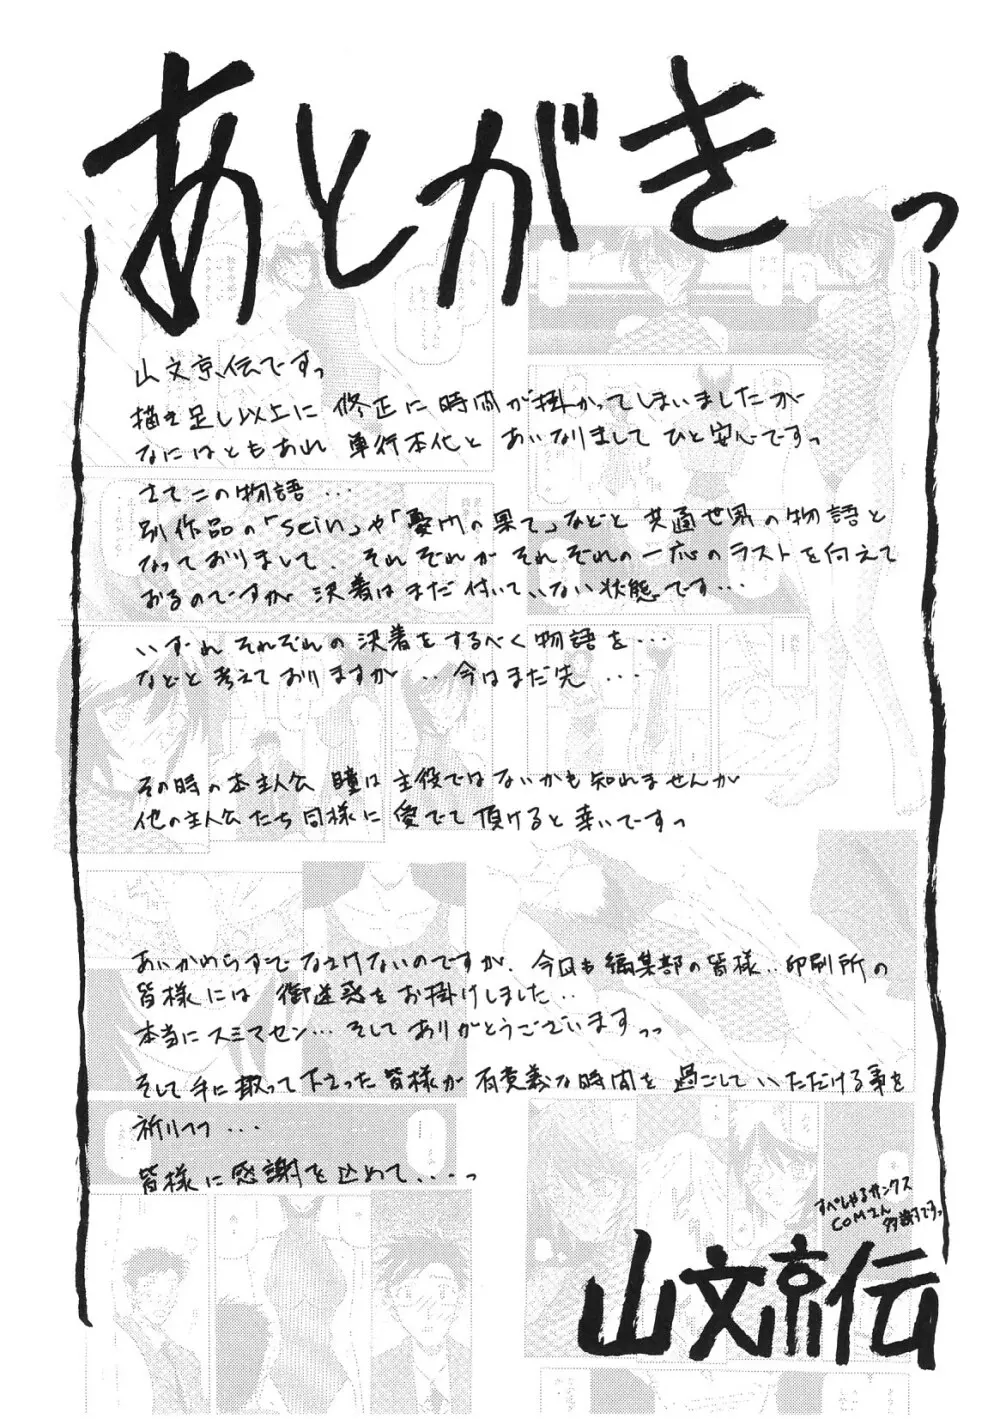 あとがきっ
山文京伝ですっ
描き足し以上に 修正に時間が掛かってしまいましたが
なにはともあれ 単行本化と あいなりまして ひと安心ですっ
さてこの物語…
別作品の「Sein」や「憂内の果て」などと 共通世界の物語と
なっておりまして、それぞれが それぞれの一応のラストを向えて
おるのですが 決着はまだ付いていない状態です…
いずれ それぞれの決着をするべく物語を…
などと考えておりますが‥今はまだ先 …
その時の本主人公 瞳は 主役ではないかも知れませんが
他の主人公たち同様に 愛でて頂けると幸いですっ
あいかわらずで なさけないのですが、今回も編集部の皆様‥印刷所の
皆様には 御迷惑をお掛けしました‥
本当にスミマセン…そして ありがとうございますっっ
そして手に取って下さった皆様が 有意義な時間を 過ごしていただける事を
祈りつつ …
皆様に感謝を込めて…っ
すぺしゃるサンクス
COMさん
多謝ですっ
山文京伝